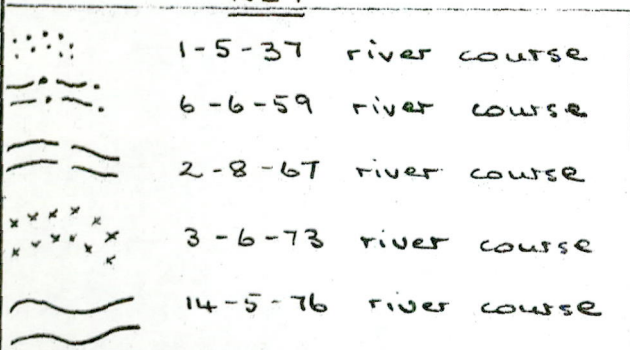 1-5-37 river course
6-6-59 river course
2-8-67 river course
3-6-73 river course
14-5-76 river course